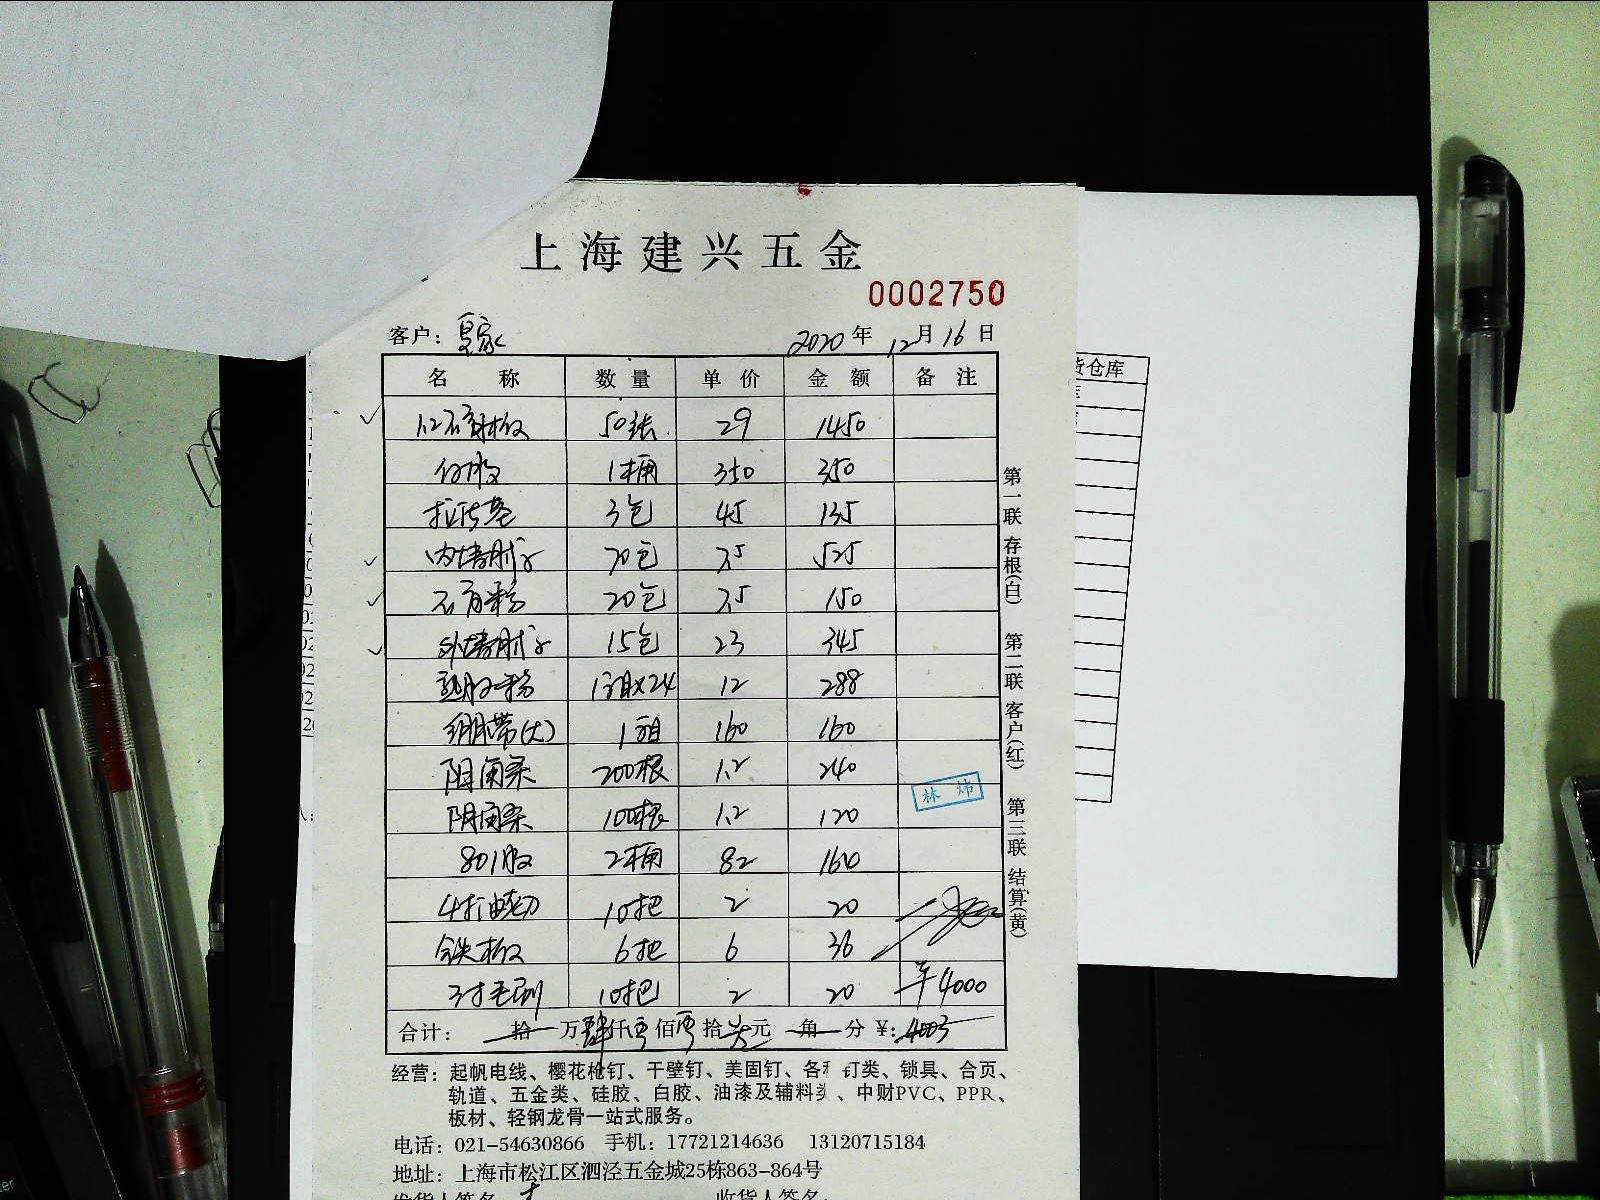 上海建兴五金
0002750
客户：夏家 2020年12月16日
名称 数量 单价 金额 备注
1.2石膏板 50张 29 1450
白胶 1桶 350 350
拉法基 3包 45 135
内墙腻子 70包 7.5 525
石膏粉 20包 7.5 150
外墙腻子 15包 23 345
1箱×24 12 288
绷带(大) 1箱 160 160
阳角条 200根 1.2 240
阴角条 100根 1.2 120
林炜
801胶 2桶 82 164
4寸油灰刀 10把 2 20
铁板 6把 6 36
3寸毛刷 10把 2 20 平4000
合计： 拾万肆仟零佰零拾叁元角分￥:4003
第一联 存根(白) 第二联 客户(红) 第三联 结算(黄)
货仓库
经营：起帆电线、樱花枪钉、干壁钉、美固钉、各种钉类、锁具、合页、
轨道、五金类、硅胶、白胶、油漆及辅料类、中财PVC、PPR、
板材、轻钢龙骨一站式服务。
电话：021-54630866 手机：17721214636 13120715184
地址：上海市松江区泗泾五金城25栋863-864号
发货人签名 收货人签名